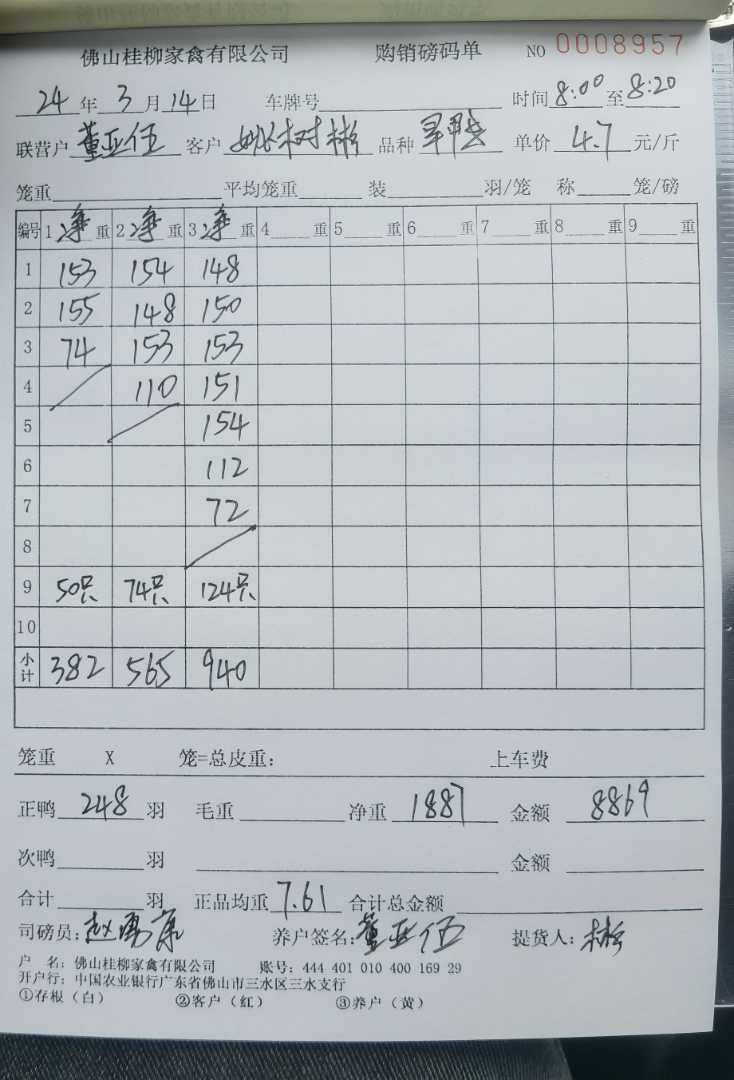 佛山桂柳家禽有限公司 购销磅码单 NO 0008957
24年3月14日 车牌号 时间8:00至8:20
联营户 董亚伍 客户 姚树彬 品种 旱鸭 单价 4.7 元/斤
笼重 平均笼重 装 羽/笼 称 笼/磅
编号 1 净 重 2 净 重 3 净 重 4 重 5 重 6 重 7 重 8 重 9 重
1 153 154 148
2 155 148 150
3 74 153 153
4 110 151
5 154
6 112
7 72
8
9 50只 74只 124只
10
小计 382 565 940
笼重 X 笼=总皮重: 上车费
正鸭 248 羽 毛重 净重 1887 金额 8869
次鸭 羽 金额
合计 羽 正品均重 7.61 合计总金额
司磅员: 赵 养户签名: 董亚伍 提货人: 彬
户 名: 佛山桂柳家禽有限公司 账号: 444 401 010 400 169 29
开户行: 中国农业银行广东省佛山市三水区三水支行
①存根（白） ②客户（红） ③养户（黄）